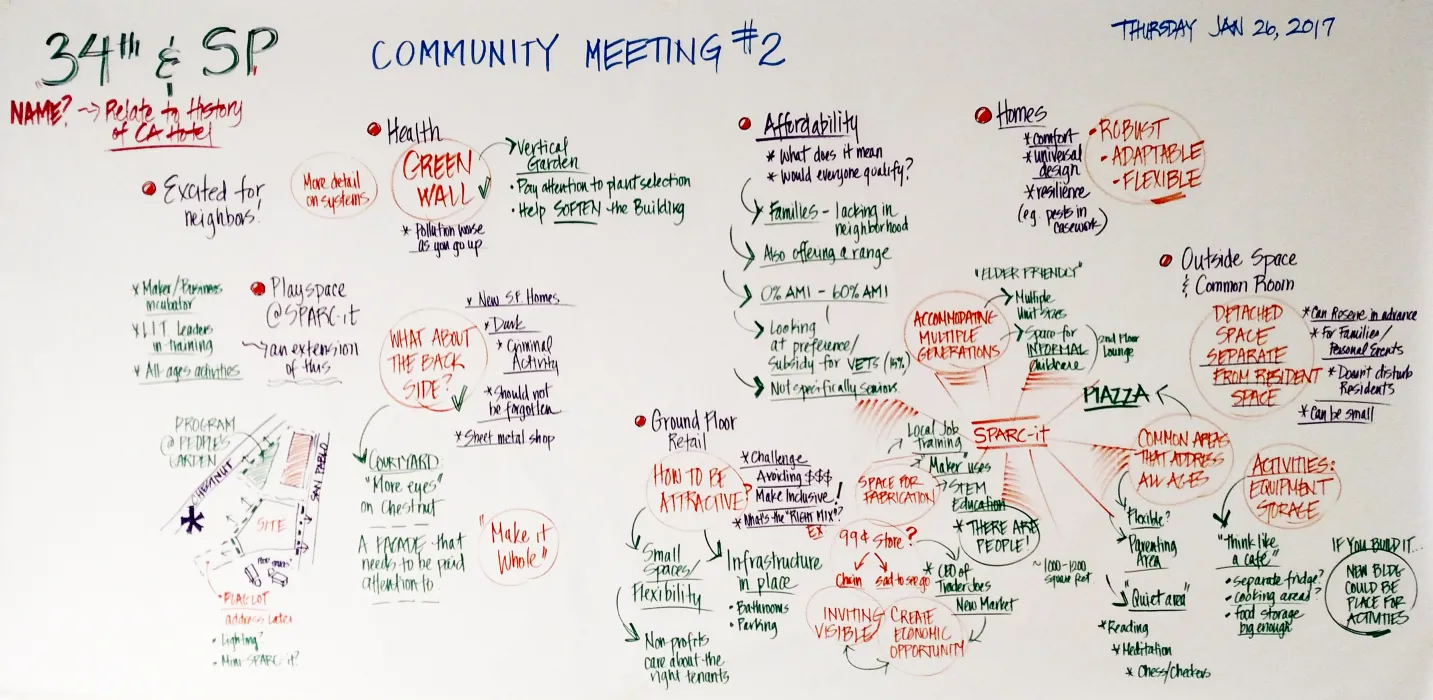 34TH & SP
COMMUNITY MEETING #2
THURSDAY JAN 26, 2017
NAME? -> Relate to History
of CA Hotel
Excited for
neighbors!
More detail
on systems
Health
GREEN
WALL
* Pollution worse
as you go up
Vertical
Garden
• Pay attention to plant selection
• Help SOFTEN the Building
Affordability
* What does it mean
* Would everyone qualify?
Families - lacking in
neighborhood
Also offering a range
0% AMI - 60% AMI
Looking
at preference/
Subsidy for VETS (15%)
Not specifically seniors.
Homes
* comfort
* universal
design
* resilience
(e.g. pests in
casework)
• ROBUST
- ADAPTABLE
- FLEXIBLE
* Maker/Business
incubator
* L.I.T. leaders
in training
* All-ages activities
Playspace
@SPARC-it
an extension
of this
WHAT ABOUT
THE BACK
SIDE?
* New S.F. Homes
* Dark
* Criminal
Activity
* Should not
be forgotten
* Sheet metal shop
COURTYARD:
"More eyes"
on Chestnut
A FACADE that
needs to be paid
attention to
"Make it
Whole"
PROGRAM
@ PEOPLE'S
GARDEN
CHESTNUT
SAN PABLO
SITE
• FLAG LOT
address later
• Lighting?
• Mini-SPARC-it?
Ground Floor
Retail
HOW TO BE
ATTRACTIVE?
* Challenge
Avoiding $$$
Make Inclusive!
* What's the "RIGHT MIX"?
Small
Spaces/
Flexibility
Non-profits
care about the
right tenants
Infrastructure
in place
• Bathrooms
• Parking
EX
99¢ Store?
Chain
sad to see go
INVITING
VISIBLE
CREATE
ECONOMIC
OPPORTUNITY
* CEO of
Trader Joes
New Market
~1000-1200
square foot
SPARC-it
SPACE FOR
FABRICATION
Local Job
Training
"Maker" uses
STEM
Education
* THERE ARE
PEOPLE!
ACCOMMODATING
MULTIPLE
GENERATIONS
"ELDER FRIENDLY"
Multiple
Unit sizes
Space for
INFORMAL
childcare
2nd Floor
Lounge
PIAZZA
COMMON AREAS
THAT ADDRESS
ALL AGES
Flexible?
Parenting
Area
"Quiet area"
* Reading
* Meditation
* Chess/Checkers
Outside Space
& Common Room
DETACHED
SPACE
SEPARATE
FROM RESIDENT
SPACE
* Can Reserve in advance
* For Families/
Personal Events
* Doesn't disturb
Residents
* Can be small
ACTIVITIES:
EQUIPMENT
STORAGE
"Think like
a café"
• separate fridge?
• cooking area?
• food storage
big enough
IF YOU BUILD IT...
NEW BLDG
COULD BE
PLACE FOR
ACTIVITIES